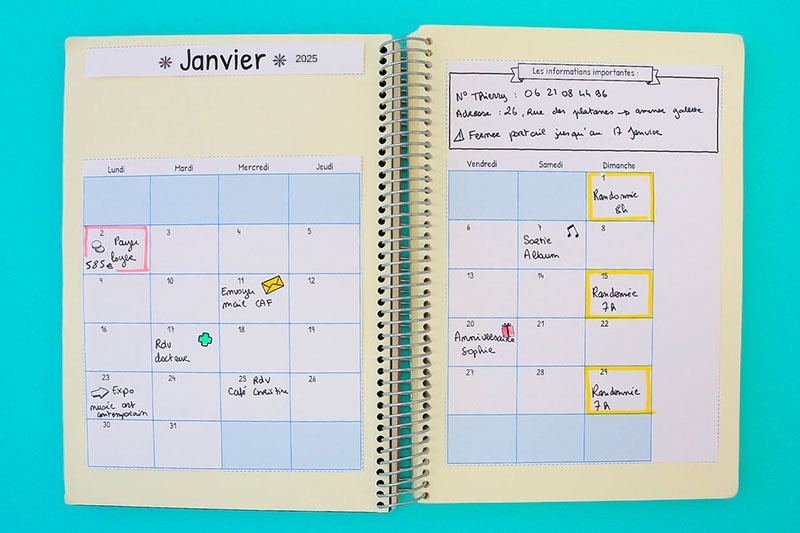 Janvier 2025
Lundi Mardi Mercredi Jeudi
2 3 4 5
Payer
loyer
585€
9 10 11 12
Envoyer
mail CAF
16 17 18 19
Rdv
docteur
23 24 25 26
Expo
music art
contemporain
Rdv
Café Christine
30 31
Les informations importantes :
N° Thierry : 06 21 08 44 96
Adresse : 26, Rue des platanes → amener galette
⚠ Fermer portail jusqu'au 17 Janvier
Vendredi Samedi Dimanche
1
Randonnée
8h
6 7 8
Sortie
Album
13 14 15
Randonnée
7h
20 21 22
Anniversaire
Sophie
27 28 29
Randonnée
7h